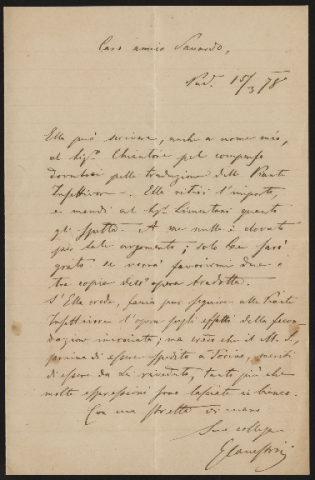 Caro amico Saccardo,
Pad. 15/3 78
Ella può scrivere, anche a nome mio,
al Sigr. Chiantore pel compenso
dovutoci pella traduzione delle Piante
Insettivore. Ella ritiri l'importo,
e mandi al Sigr. gli spetta. A me nulla è dovuto
per tale argomento; solo Le sarò
grato se vorrà favorirmi due o
tre copie dell'opera tradotta.
S'Ella crede, farei pur seguire alle Piante
Insettivore l'opera sugli effetti della fecon
dazione incrociata; ma credo che il M. S.,
prima di essere spedito a Torino, meriti
di essere da Lei riveduto, tanto più che
molte espressioni sono lasciate in bianco.
Con una stretta di mano
Suo collega
G Canestrini